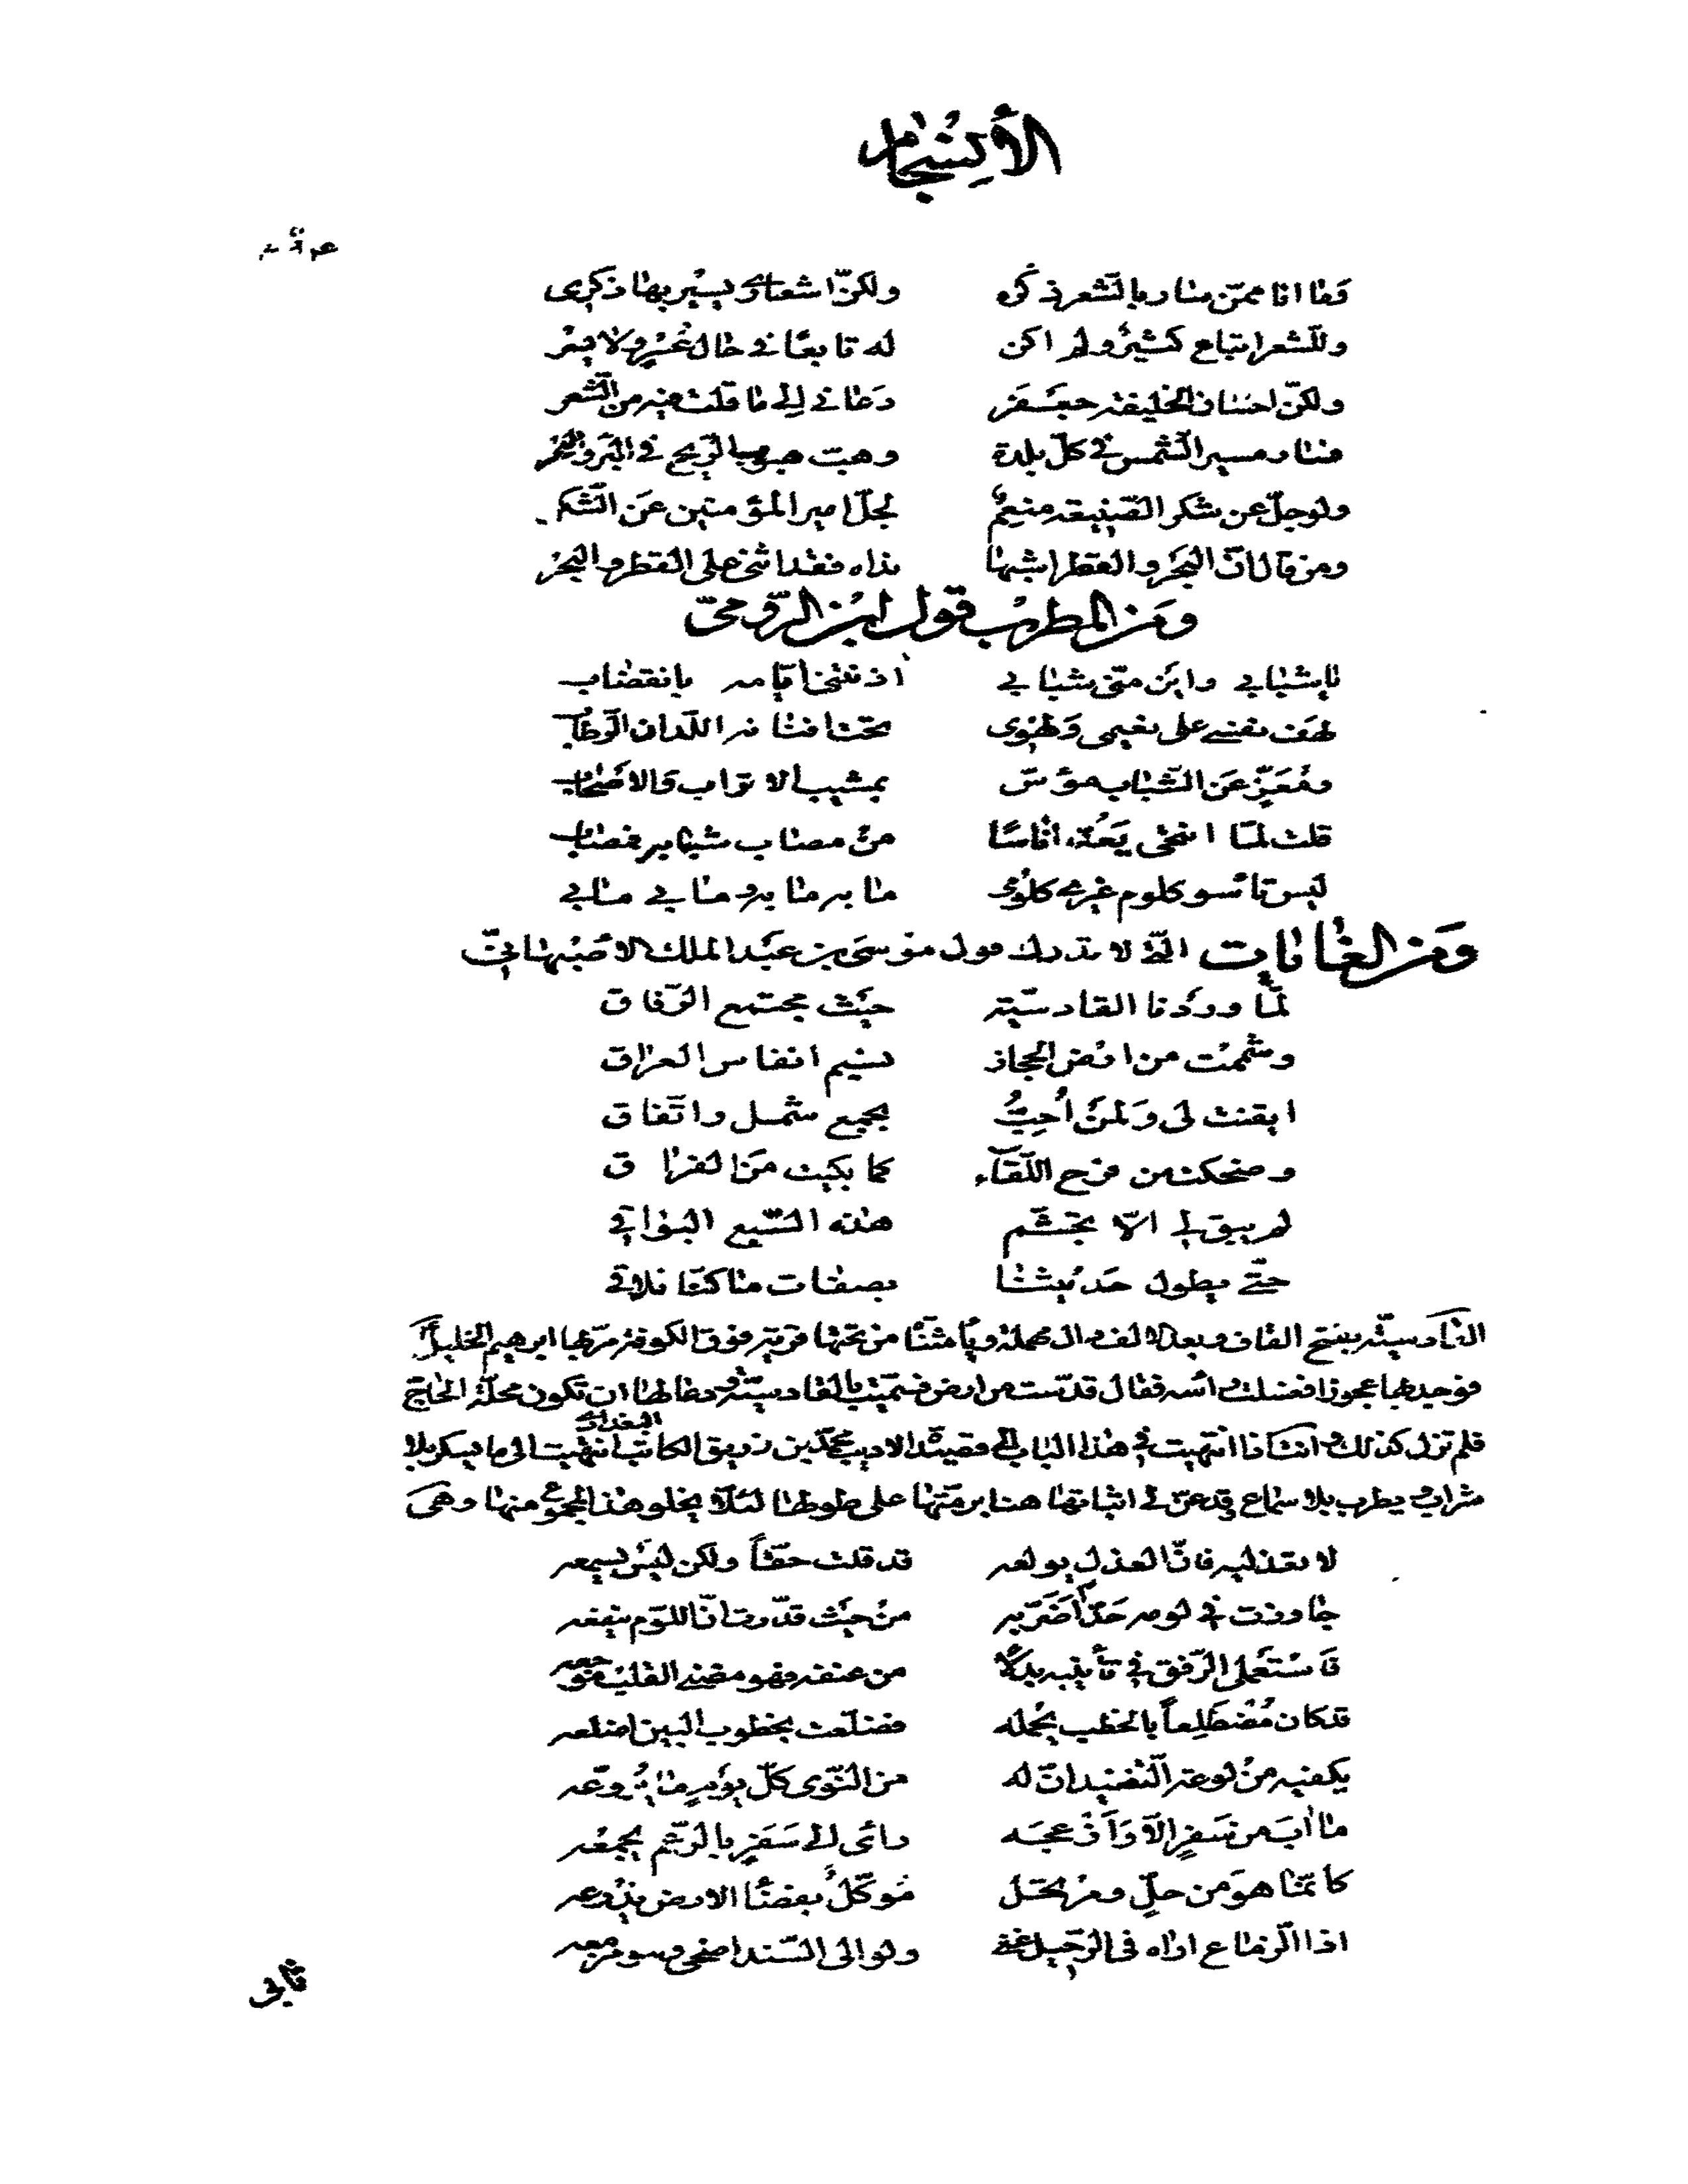 الأنسجام
وما انا ممّن سار بالشعر ذكره ولكنّ اشعارى يسير بها ذكرى
وللشعر اتباع كثيرٌ ولم اكن له تابعًا فى حال عُسرٍ ولا يسر
ولكنّ احسان الخليفة جعفر دعانى الى ما قلت فيه من الشعر
فسار مسير الشمس فى كلّ بلدة وهبّ هبوب الريح فى البرّ والبحر
ولو جلّ عن شكر الصّنيعة منعمٌ لجلّ امير المؤمنين عن الشكر
ومن قال انّ البحر والقطر اشبها نداه فقد اثنى على القطر والبحر
ومن المطرب قول ابن الرّومىّ
يا شبابى واين منّى شبابى اذنتنى ايّامه بانقضاب
لهف نفسى على نعيمى ولهوى تحت افنانه اللّدان الرّطاب
ومُعَزٍّ عن الشّباب مؤسّ بمشيب الاتراب والاصحاب
قلت لمّا انتحى يعدّ اناسًا من مصاب شبابه فمصاب
ليس تأسو كلوم غيرى كلومى ما به ما به وما بى مابى
ومن الغايات التى لا تدرك قول موسى بن عبد الملك الاصبهانىّ
لمّا وردنا القادسيّة حيث مجتمع الرّفاق
وشممت من ارض الحجاز نسيم انفاس العراق
ايقنت لى ولمن أُحبُّ بجمع شمل واتّفاق
وضحكت من فرح اللّقاء كما بكيت من الفراق
لم يبق لى الّا تجشّم هذه السّبع البواقى
حتّى يطول حديثنا بصفات ما كنّا نلاقى
القادسيّة بفتح القاف وبعد الالف دال مهملة ويا مثنّا من تحتها قرية فوق الكوفة مرّ بها ابرهيم الخليل
فوجد بها عجوزا فغسلت رأسه فقال قدّست من ارض فسمّيت بالقادسيّة ودعا لها ان تكون محلّة الحاجّ
فلم تزل كذلك وانشاذا انتهيت فى هذا الباب الى قصيدة الاديب محمّد بن زريق الكاتب البغدادى انتهيت الى ما يسكر بلا
شراب ويطرب بلا سماع وقد عنّ لى اثباتها هنا برمّتها على طولها لئلّا يخلو هذا المجموع منها وهى
لا تعذليه فانّ العذل يولعه قد قلت حقّاً ولكن ليس يسمعه
جاوزت فى لومه حدّاً اضرّ به من حيث قدّرت انّ اللّوم ينفعه
فاستعملى الرّفق فى تأنيبه بدلاً من عنفه فهو مضنى القلب موجعه
قد كان مُضْطَلِعاً بالخطب يحمله فضلّعت بخطوب البين اضلعه
يكفيه من لوعة التّفنيد انّ له من النّوى كلّ يومٍ ما يُروّعه
ما آب من سفرٍ الّا وآزعجه رأى الى سفرٍ بالرّغم يجمعه
كأنّما هو من حلّ ومرتحل موكّلٌ بفضاء الارض يذرعه
اذا الزماع اراه فى الرّحيل غنى ولو الى السّند اضحى وهو مزمعه
تأبى